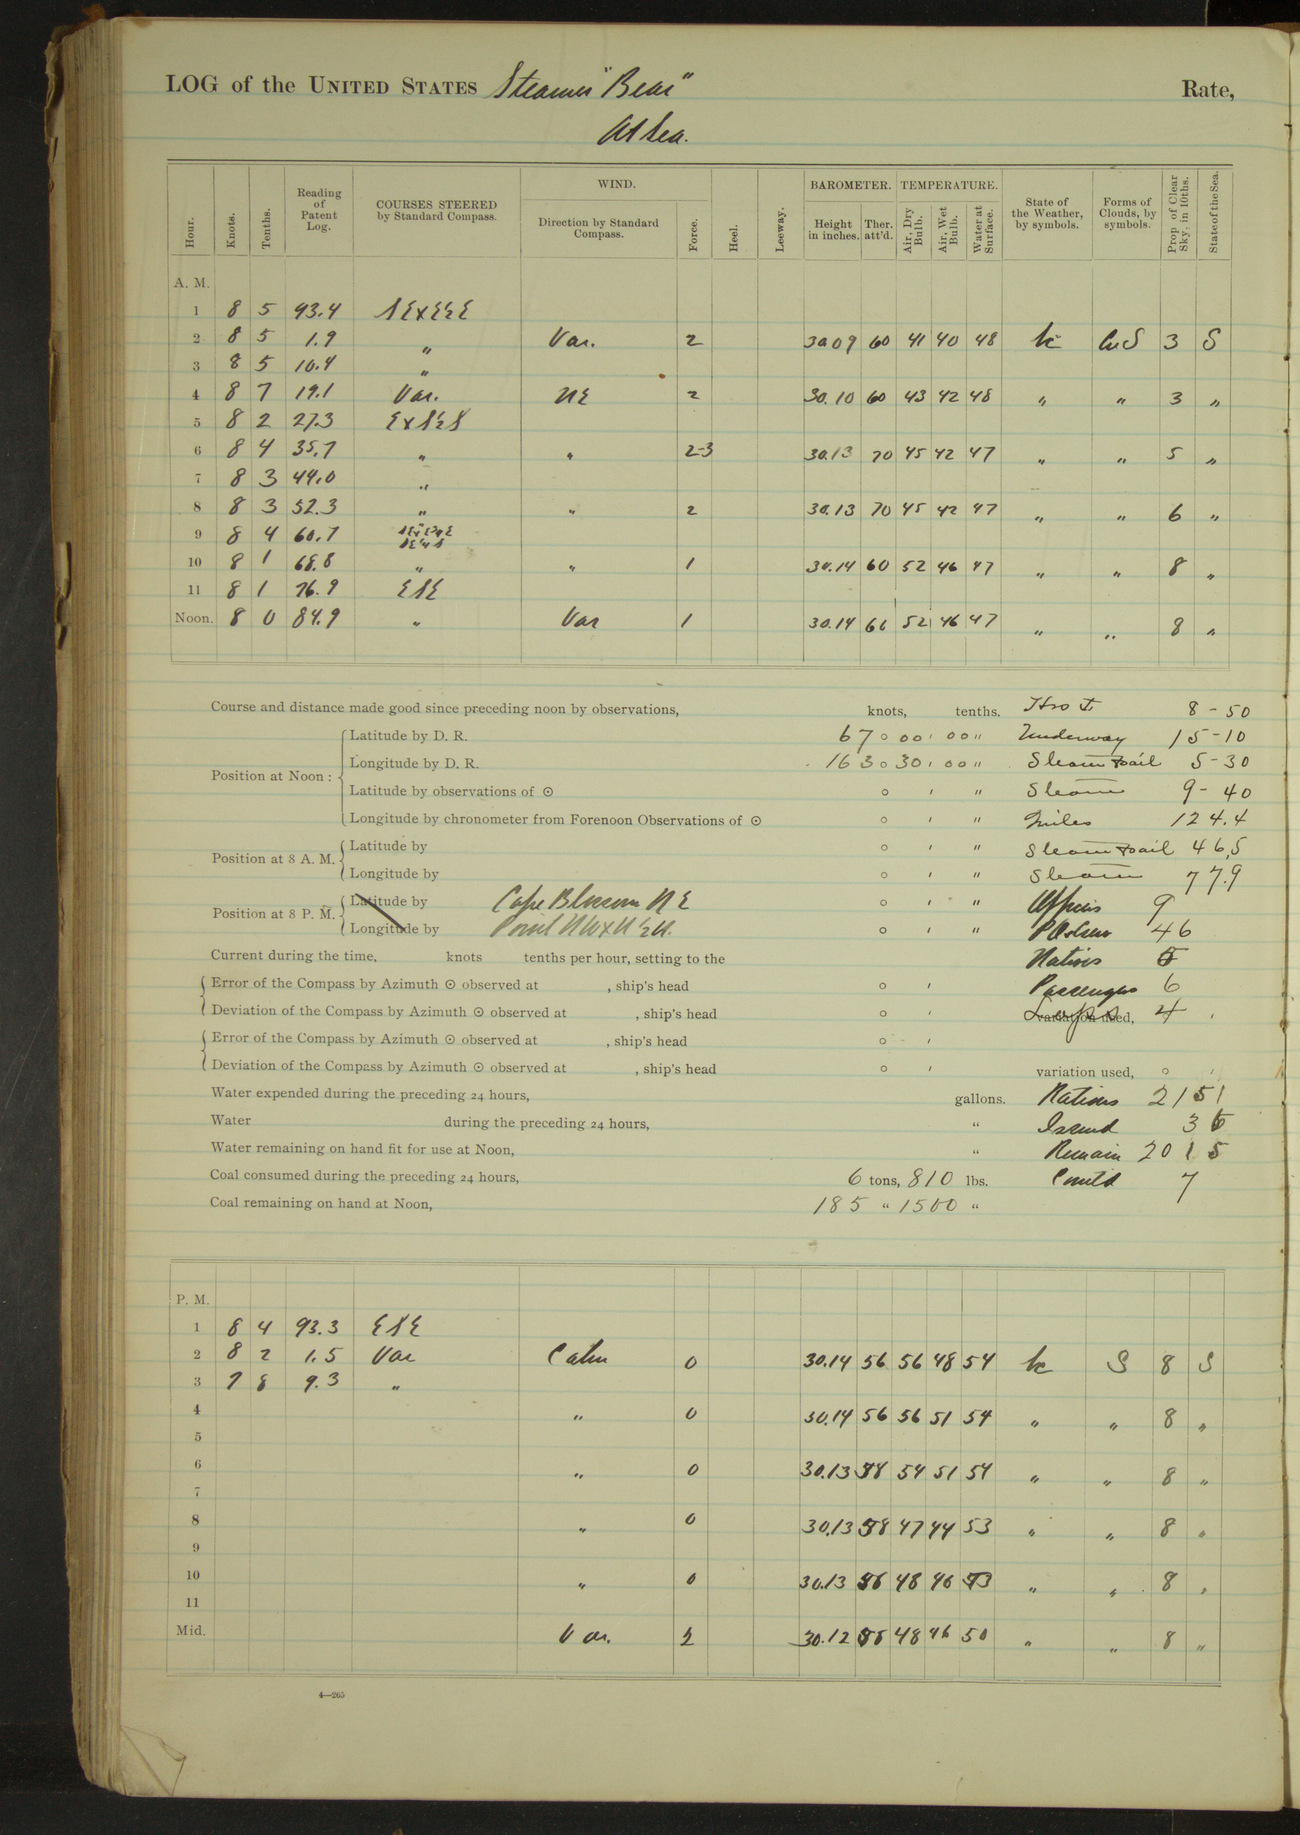 LOG of the UNITED STATES Steamer "Bear" Rate,
At Sea.
Hour. Knots. Tenths. Reading of Patent Log. COURSES STEERED by Standard Compass. WIND. Direction by Standard Compass. Force. Heel. Leeway. BAROMETER. Height in inches. Ther. att'd. TEMPERATURE. Air, Dry Bulb. Air, Wet Bulb. Water at Surface. State of the Weather, by symbols. Forms of Clouds, by symbols. Prop. of Clear Sky, in 10ths. State of the Sea.
A. M.
1 8 5 93.4 SExE½E
2 8 5 1.9 " Var. 2 30.09 60 41 40 48 bc CuS 3 S
3 8 5 10.4 "
4 8 7 19.1 Var. NE 2 30.10 60 43 42 48 " " 3 "
5 8 2 27.3 ExS½S
6 8 4 35.7 " " 2-3 30.13 70 45 42 47 " " 5 "
7 8 3 44.0 "
8 8 3 52.3 " " 2 30.13 70 45 42 47 " " 6 "
9 8 4 60.7
10 8 1 68.8 " " 1 30.14 60 52 46 47 " " 8 "
11 8 1 76.9 ESE
Noon. 8 0 84.9 " Var 1 30.14 66 52 46 47 " " 8 "
Course and distance made good since preceding noon by observations, knots, tenths. 8-50
Position at Noon :
Latitude by D. R. 67 ° 00 ' 00 " Underway 15-10
Longitude by D. R. 163 ° 30 ' 00 " Steam & sail 5-30
Latitude by observations of ☉ ° ' " Steam 9-40
Longitude by chronometer from Forenoon Observations of ☉ ° ' " Miles 124.4
Position at 8 A. M.
Latitude by ° ' " Steam & sail 46.5
Longitude by ° ' " Steam 77.9
Position at 8 P. M.
Latitude by Cape Blossom NE ° ' " Officers 9
Longitude by Point NWxN½N. ° ' " 46
Current during the time, knots tenths per hour, setting to the Natives
Error of the Compass by Azimuth ☉ observed at , ship's head ° ' Passengers 6
Deviation of the Compass by Azimuth ☉ observed at , ship's head ° ' variation used, Lapps 4 '
Error of the Compass by Azimuth ☉ observed at , ship's head ° '
Deviation of the Compass by Azimuth ☉ observed at , ship's head ° ' variation used, ° '
Water expended during the preceding 24 hours, gallons. Rations 2151
Water during the preceding 24 hours, " Issued
Water remaining on hand fit for use at Noon, " Remain 2015
Coal consumed during the preceding 24 hours, 6 tons, 810 lbs. Comtd 7
Coal remaining on hand at Noon, 185 " 1500 "
P. M.
1 8 4 93.3 ESE
2 8 2 1.5 Var Calm 0 30.14 56 56 48 54 bc S 8 S
3 7 8 9.3 "
4 " 0 30.14 56 56 51 54 " " 8 "
5
6 " 0 30.13 58 54 51 54 " " 8 "
7
8 " 0 30.13 58 47 44 53 " " 8 "
9
10 " 0 30.13 56 48 46 53 " " 8 "
11
Mid. Var. 2 30.12 58 48 46 50 " " 8 "
4—265